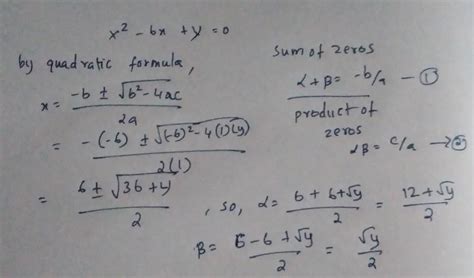 x² - 6x + y = 0
by quadratic formula,
x = -b ± √b²-4ac / 2a
= -(-6) ± √(-6)²-4(1)(y) / 2(1)
= 6 ± √36+y / 2
sum of zeros
α+β = -b/a — ①
product of
zeros
αβ = c/a → ②
, so, α = 6+6+√y / 2 = 12+√y / 2
β = 6-6+√y / 2 = √y / 2